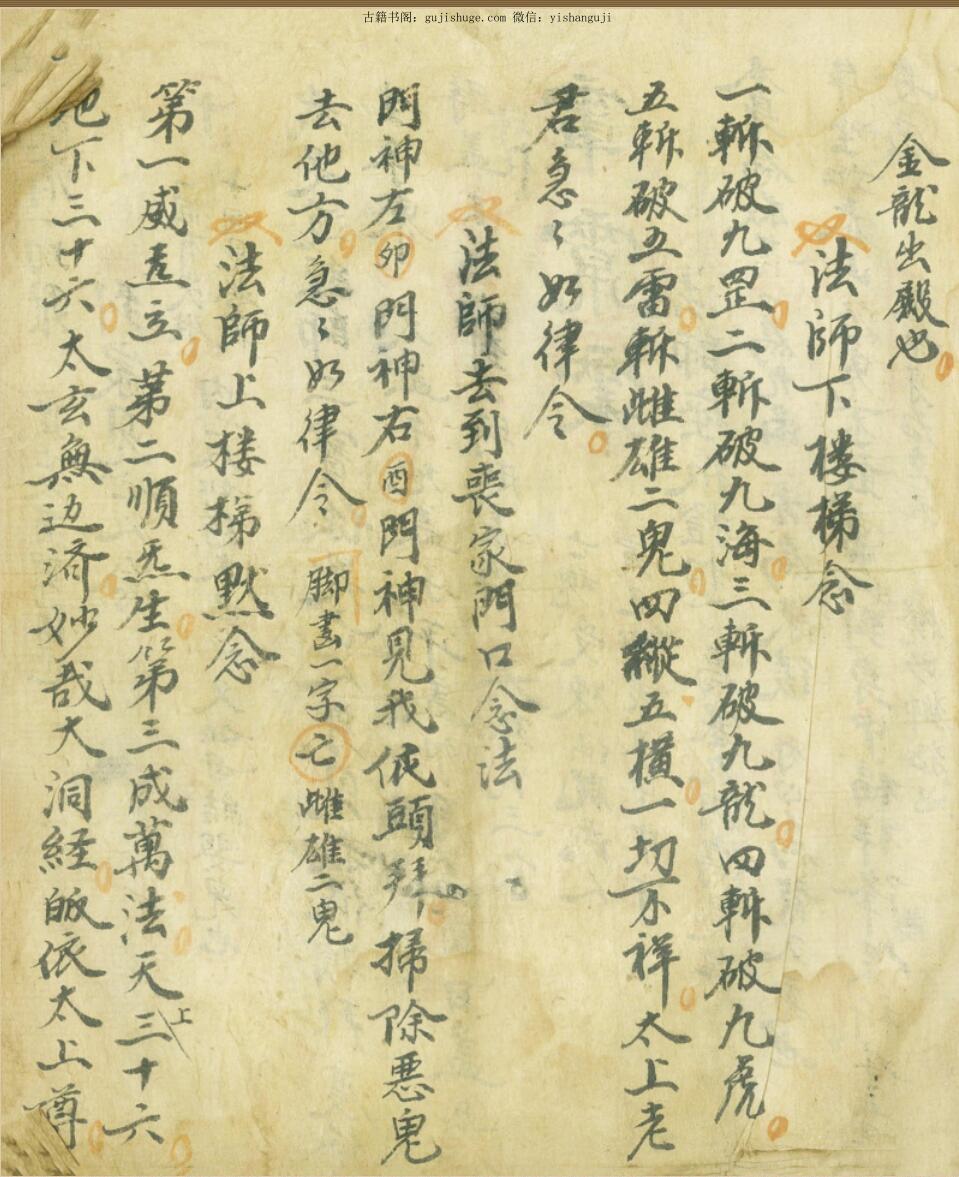 古籍书阁：gujishuge.com 微信：yishanguji
金龍出殿也
法師下楼梯念
一斬破九罡二斬破九海三斬破九龍四斬破九虎
五斬破五雷斬雌雄二鬼四縱五橫一切不祥太上老
君急々如律令
法師去到喪家門口念法
門神左卯門神右酉門神見我依頭拜掃除惡鬼
去他方急々如律令 脚書一字亡雌雄二鬼
法師上楼梯默念
第一威立第二順炁生第三成萬法天上三十六
地下三十六太玄無边济妙哉大洞経皈依太上尊